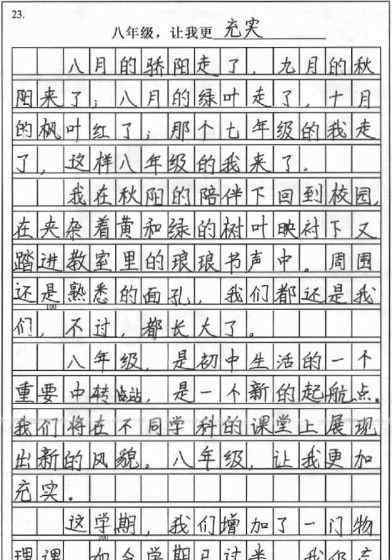 23.
八年级，让我更 充实
八月的骄阳走了，九月的秋
阳来了；八月的绿叶走了，十月
的枫叶红了；那个七年级的我走
了，这样八年级的我来了。
我在秋阳的陪伴下回到校园，
在夹杂着黄和绿的树叶映衬下又
踏进教室里的琅琅书声中。周围
还是熟悉的面孔，我们都还是我
100
们，不过，都长大了。
八年级，是初中生活的一个
重要中转站，是一个新的起航点。
我们将在不同学科的课堂上展现
出新的风貌。八年级，让我更加
充实。
这学期，我们增加了一门物
理课